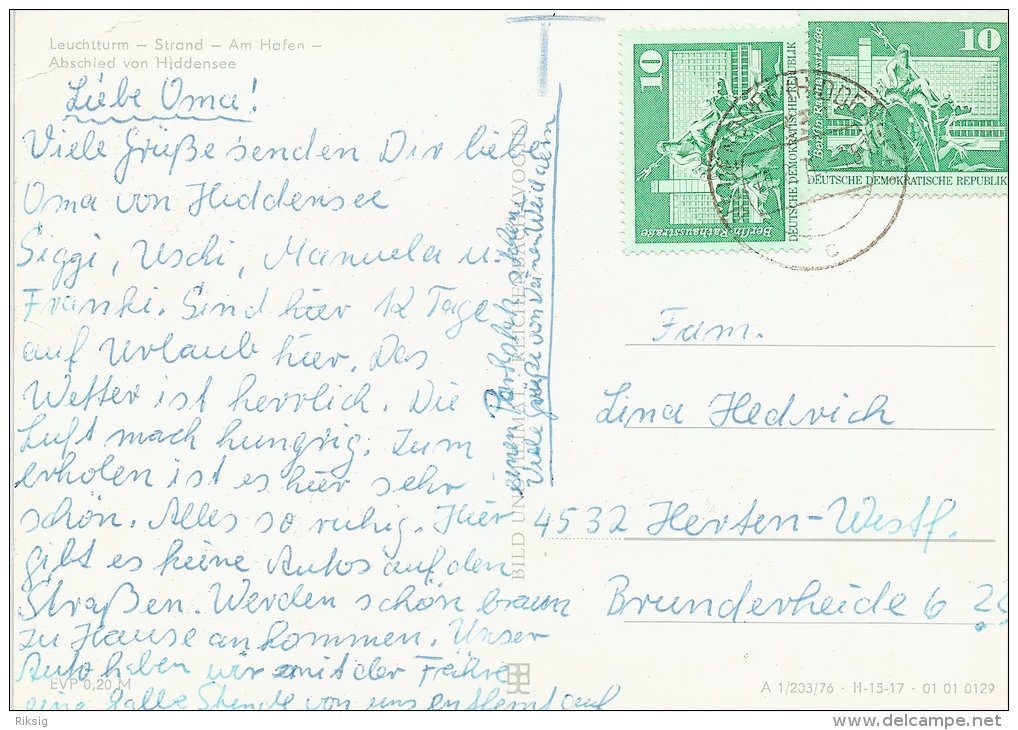 Leuchtturm – Strand – Am Hafen –
Abschied von Hiddensee
Liebe Oma!
Viele Grüße senden Dir lieben
Oma von Hiddensee
Siggi, Uschi, Manuela u.
Franki. Sind hier 12 Tage
auf Urlaub hier. Das
Wetter ist herrlich. Die
Luft mach hungrig. Zum
erholen ist es hier sehr
schön. Alles so ruhig. Hier
gibt es keine Autos auf den
Straßen. Werden schön braun
zu Hause ankommen. Unser
Auto haben wir mit der Fähre
eine halbe Stunde von uns entfernt auf
einen Parkplatz
Viele Grüße von
BILD UND HEIMAT REICHENBACH (VOGTL)
10
Berlin-Rathausstraße
DEUTSCHE DEMOKRATISCHE REPUBLIK
10
Berlin-Rathausstraße
DEUTSCHE DEMOKRATISCHE REPUBLIK
c
Fam.
Lina Hedrich
4532 Herten-Westf.
Brunderheide 6
EVP 0,20 M
A 1/203/76 · H-15-17 · 01 01 0129
Riksig
delcampe.net